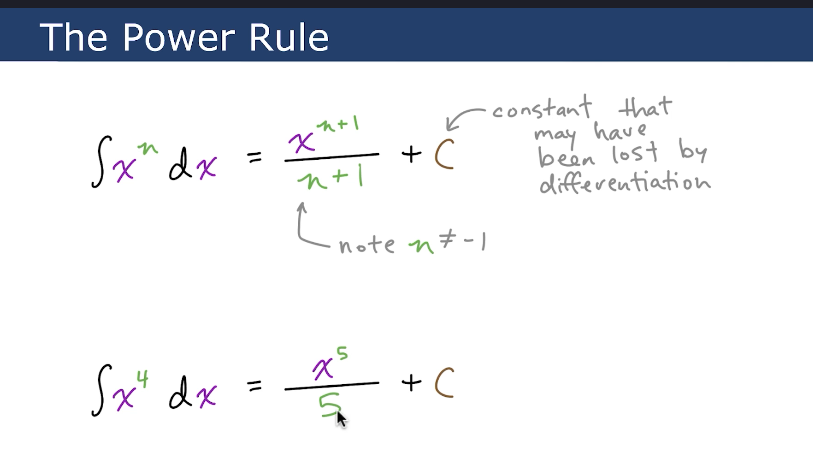 The Power Rule
∫xⁿ dx = xⁿ⁺¹/(n+1) + C
constant that
may have
been lost by
differentiation
note n ≠ -1
∫x⁴ dx = x⁵/5 + C